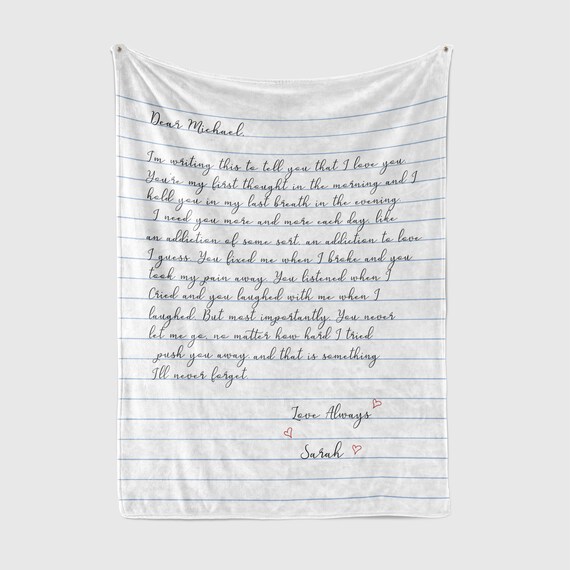 Dear Michael,
I'm writing this to tell you that I love you.
You're my first thought in the morning and I
hold you in my last breath in the evening.
I need you more and more each day, like
an addiction of some sort, an addiction to love
I guess. You fixed me when I broke and you
took my pain away. You listened when I
Cried and you laughed with me when I
laughed. But most importantly, You never
let me go, no matter how hard I tried
push you away, and that is something
I'll never forget.
Love Always
Sarah